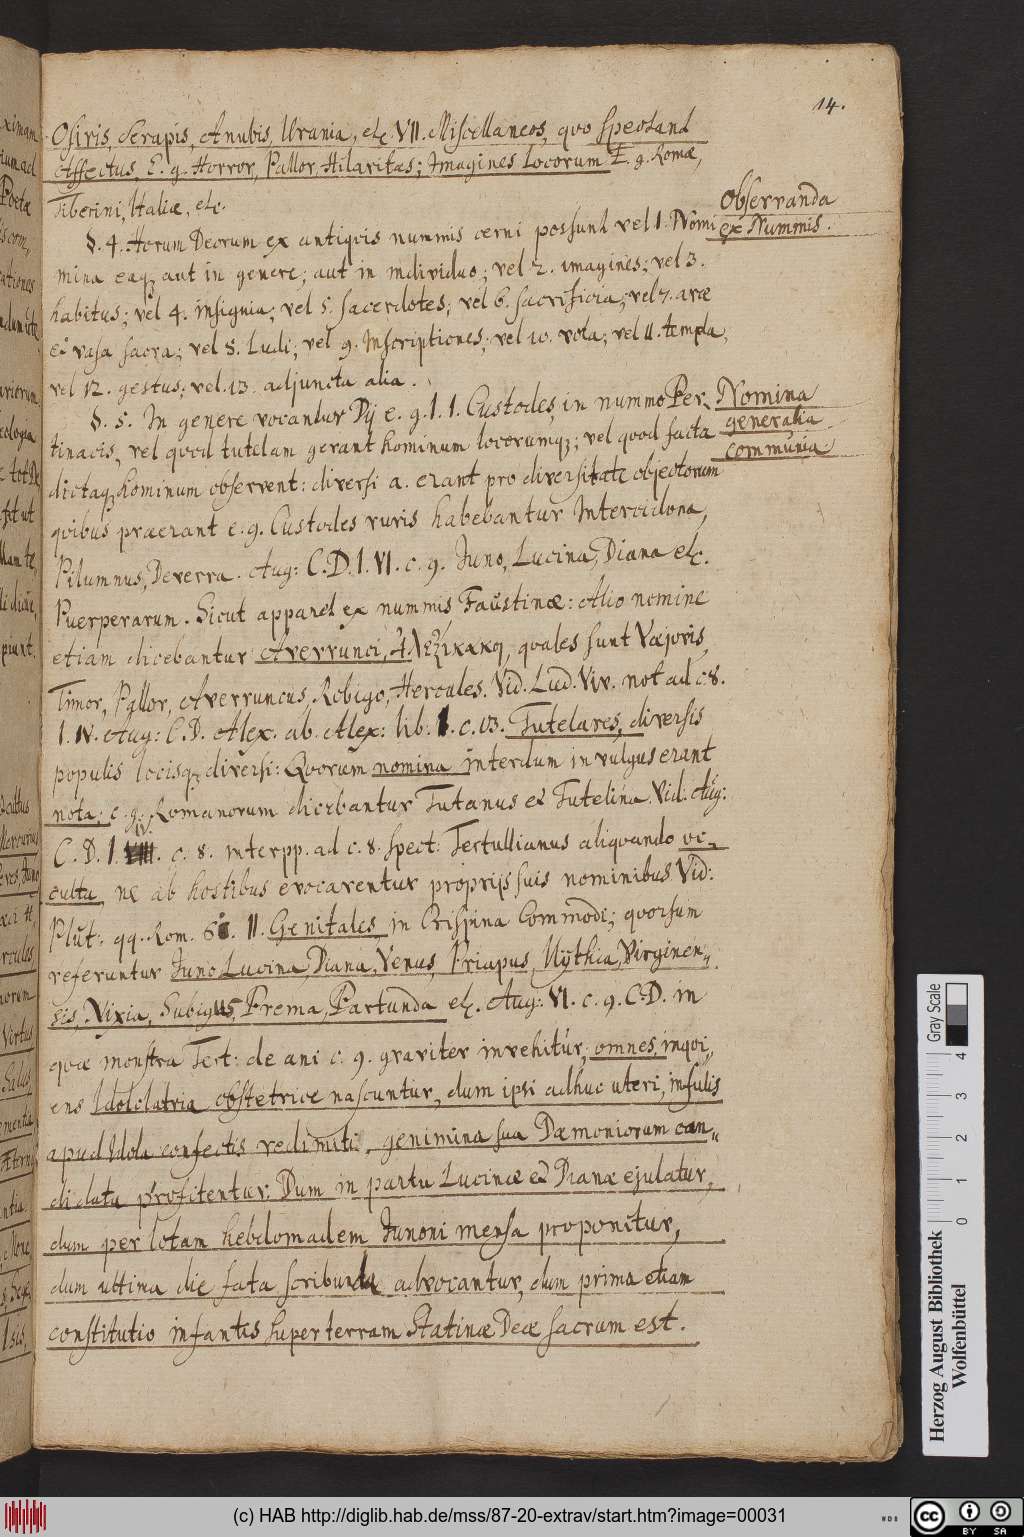 14.
Osiris, Serapis, Anubis, Urania, etc. VII. Miscellaneos, quo spectant
Affectus, E. g. Horror, Pallor, Hilaritas; Imagines locorum E. g. Romæ,
Tiberini, Italiæ, etc.
Observanda
ex Nummis.
§. 4. Horum Deorum ex antiqvis nummis cerni possunt vel 1. Nomi
mina eaq; aut in genere; aut in individuo; vel 2. imagines; vel 3.
habitus; vel 4. insignia; vel 5. sacerdotes; vel 6. sacrificia; vel 7. aræ
et vasa sacra; vel 8. Ludi; vel 9. Inscriptiones; vel 10. vota; vel 11. templa,
vel 12. gestus; vel. 13. adjuncta alia.
Nomina
generalia
communia
§. 5. In genere vocantur Dij e. g. 1. 1. Custodes, in nummo Per-
tinacis, vel quod tutelam gerant hominum locorumq;; vel quod facta
dictaq; hominum observent: diversi a. erant pro diversitate objectorum
qvibus praeerant e. g. Custodes ruris habebantur Intercidona,
Pilumnus, Deverra. Aug: C. D. l. VI. c. 9. Juno, Lucina, Diana etc.
Puerperarum. Sicut apparet ex nummis Faustinæ: Alio nomine
etiam dicebantur Averrunci, quales sunt Væjovis,
Timor, Pallor, Averruncus, Robigo, Hercules. Vid. Lud. Viv. not ad c. 8.
l. IV. Aug: C. D. Alex. ab. Alex: lib. 1. c. 13. Tutelares, diversis
populis locisq; diversi: Qvorum nomina interdum in vulgus erant
nota; e. g. Romanorum dicebantur Tutanus et Tutelina. Vid. Aug:
C. D. l. IV. c. 8. interpp. ad c. 8. spect: Tertullianus aliquando oc-
culta, ne ab hostibus evocarentur proprijs suis nominibus Vid:
Plut: qq. Rom. 61. II. Genitales, in Crispina Commodi; quorsum
referuntur Juno Lucina, Diana, Venus, Priapus, Virginen-
sis, Nixia, Subigus, Prema, Partunda etc. Aug: VI. c. 9. C. D. in
quæ monstra Tert: de ani c. 9. graviter invehitur, omnes, inqvi-
ens Idololatria obstetrice nascuntur, dum ipsi adhuc uteri, infulis
apud Idola confectis redimiti, genimina sua Dæmoniorum can-
didata profitentur: Dum in partu Lucinæ et Dianæ ejulatur,
dum per totam hebdomadem Junoni mensa proponitur,
dum ultima die fata scribunda advocantur, dum prima etiam
constitutio infantis super terram Statinæ Deæ sacrum est.
Gray Scale
0 1 2 3 4
Herzog August Bibliothek
Wolfenbüttel
(c) HAB http://diglib.hab.de/mss/87-20-extrav/start.htm?image=00031
CC BY SA